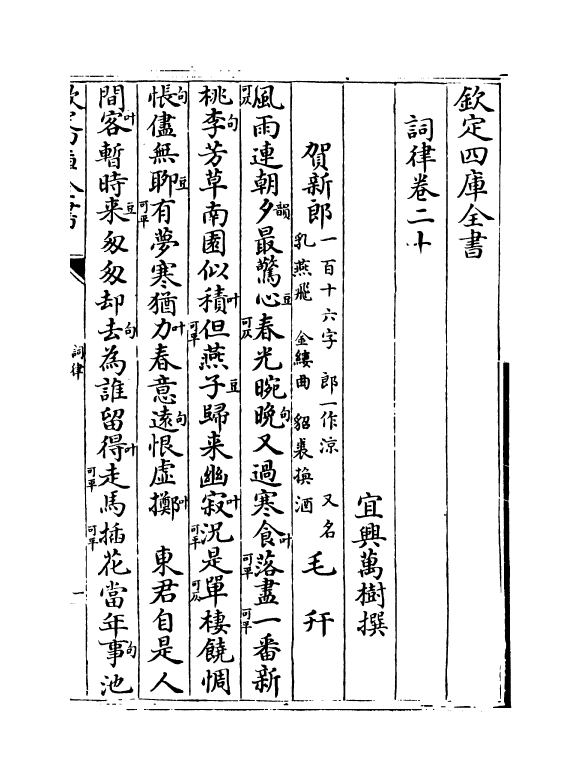 欽定四庫全書
詞律卷二十
宜興萬樹撰
賀新郎 一百十六字 郎一作涼 又名
乳燕飛 金縷曲 貂裘換酒 毛幵
可仄風雨連朝夕韻最驚心豆可仄春光晼晚句又過寒食叶可平落盡可平一番新
桃李句芳草南園似積叶可平但燕子豆歸来幽寂叶可平況是可仄單棲饒惆
悵句儘無聊豆可平有夢寒猶力叶春意遠句恨虛擲叶 東君自是人
間客叶暫時来豆匆匆却去句為誰留得叶可平走馬可平插花當年事句池
詞律
一